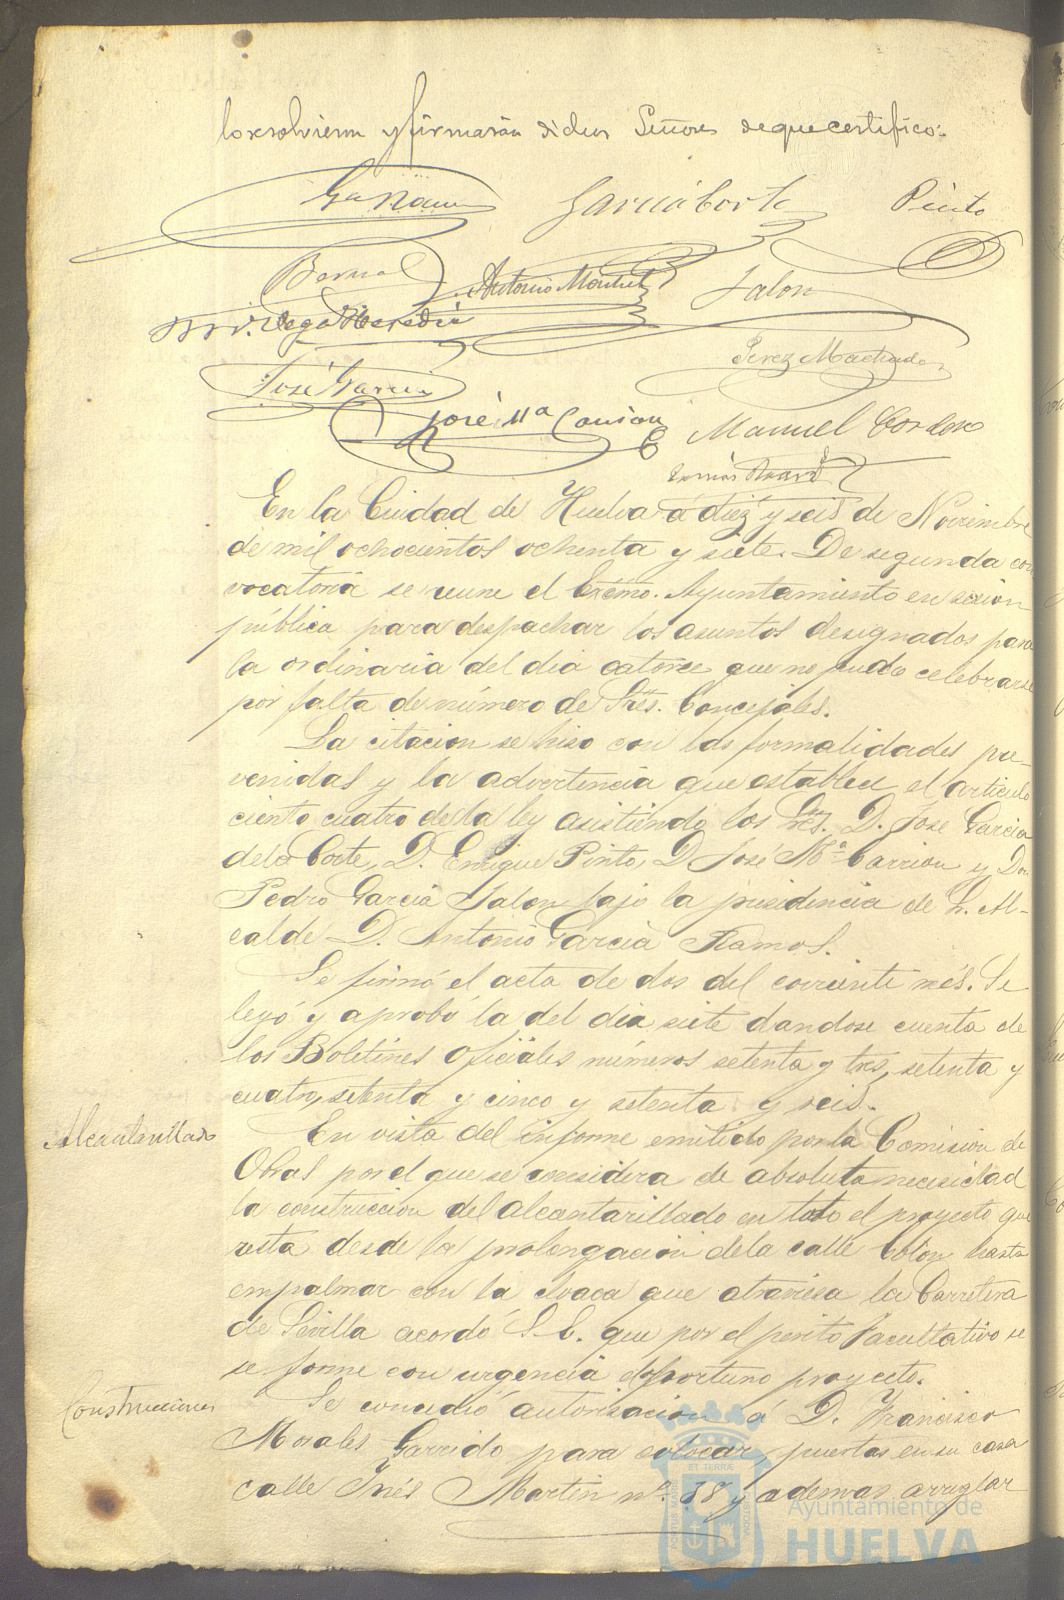 lo resolvieron y firmaran dichos Señores de que certifico.
García Corte Pinto
Bernal Antonio Montiel Jalon
Vega Heredia
Perez Machado
José García
José Mª Carrion Manuel Cordero
En la Ciudad de Huelva á diez y seis de Noviembre
de mil ochocientos ochenta y siete. De segunda con
vocatoria se reune el Excmo. Ayuntamiento en sesion
pública para despachar los asuntos designados para
la ordinaria del dia catorce que no pudo celebrarse
por falta de número de Sres. Concejales.
La citacion se hizo con las formalidades pre-
venidas y la advertencia que establece el artículo
ciento cuatro de la ley asistiendo los Sres. D. José Garcia
de la Corte, D. Enrique Pinto, D. José Mª Carrion y Don
Pedro Garcia Jalon bajo la presidencia de S. Al-
calde D. Antonio Garcia Ramos.
Se firmó el acta de dos del corriente mes. Se
leyó y aprobó la del dia siete dandose cuenta de
los Boletines Oficiales números setenta y tres, setenta y
cuatro, setenta y cinco y setenta y seis.
Alcantarillado
En vista del informe emitido por la Comision de
Obras por el que se considera de absoluta necesidad
la construccion del alcantarillado en todo el proyecto que
resta desde la prolongacion de la calle Colon hasta
empalmar con la cloaca que atraviesa la Carretera
de Sevilla acordó S.E. que por el perito facultativo se
se forme con urgencia el oportuno proyecto.
Construcciones
Se concedió autorizacion á D. Francisco
Morales Garrido para colocar puertas en su casa
calle Inés Martin nº. 38 y ademas arreglar
PORTUS MARIS ET TERRÆ CUSTODIA
Ayuntamiento de
HUELVA